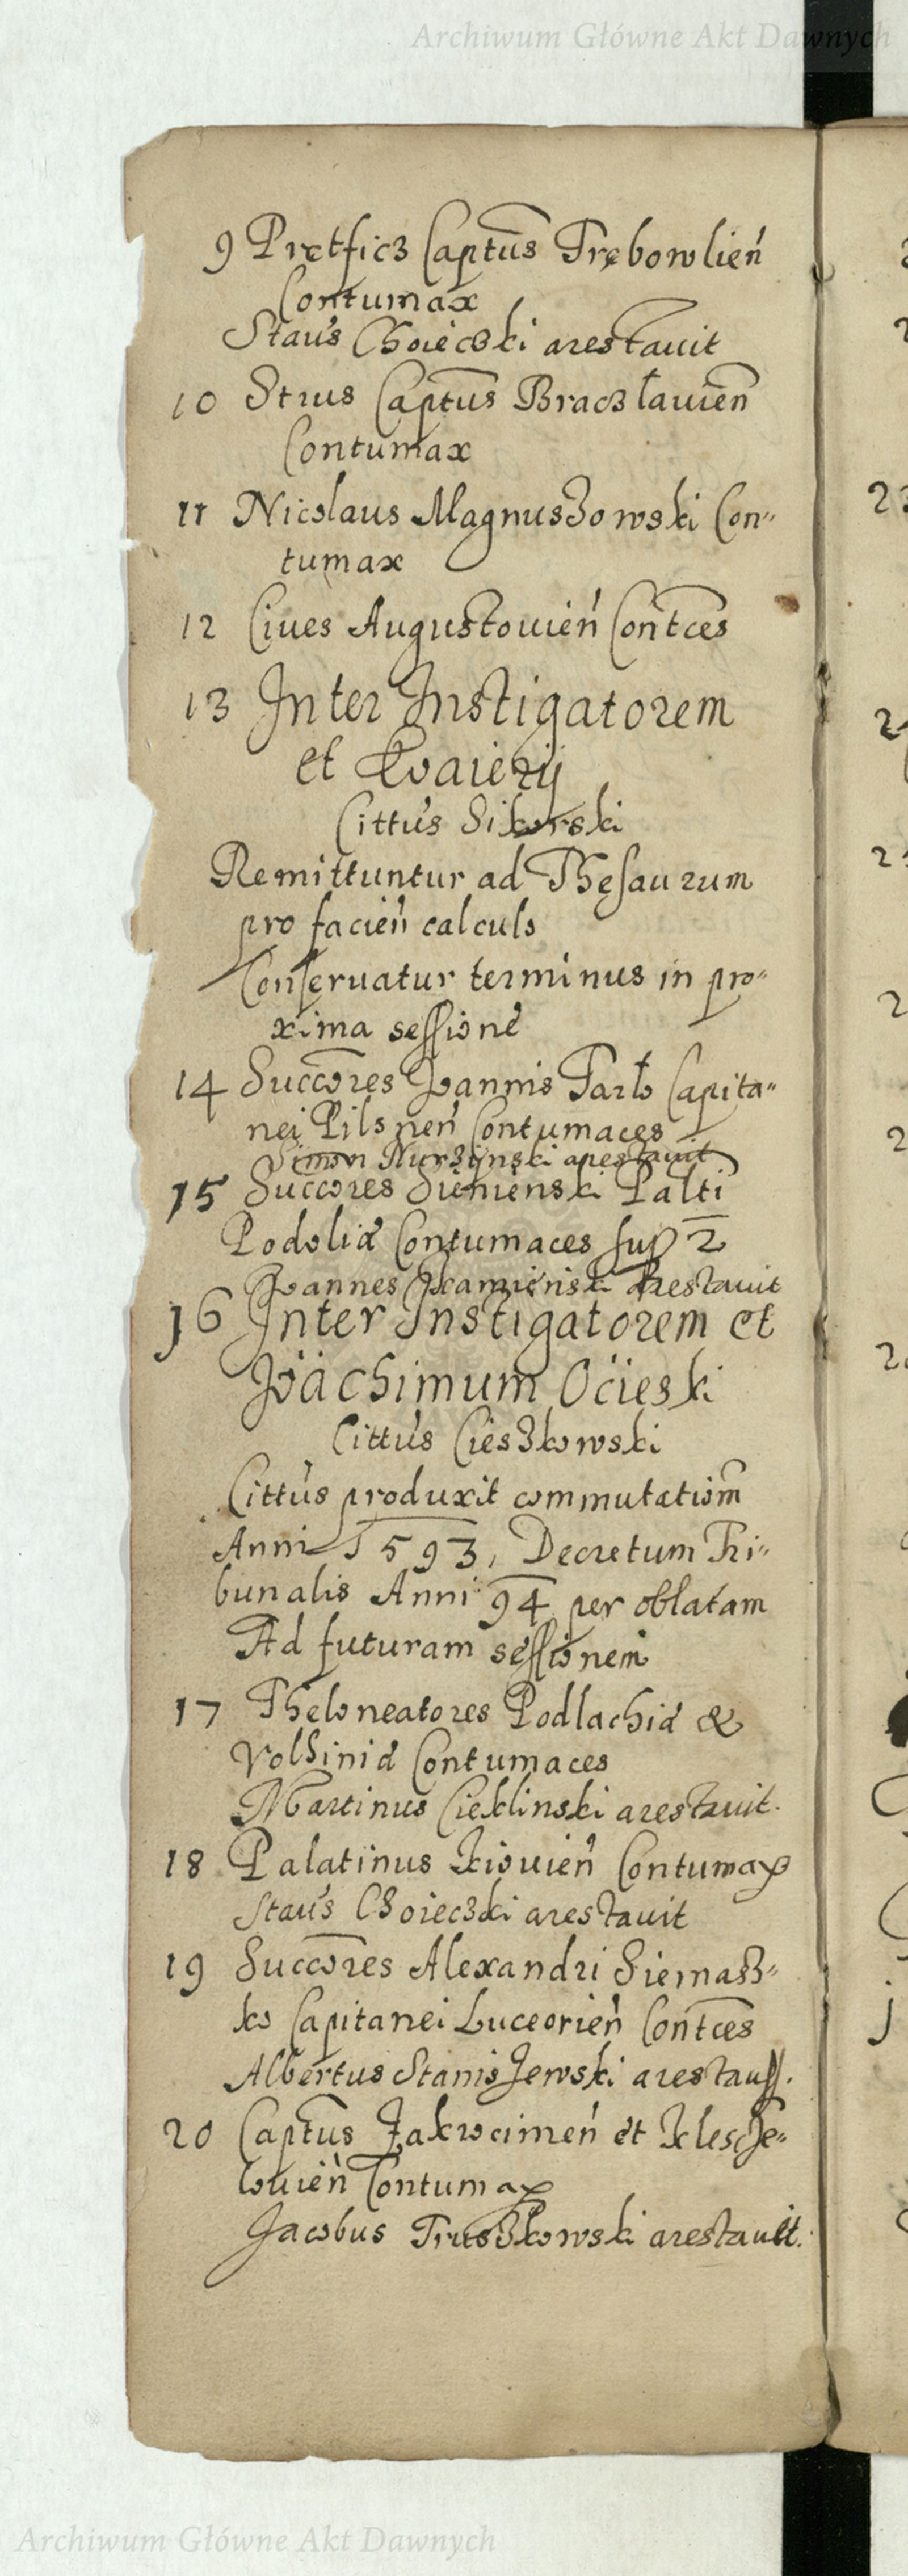 Archiwum Główne Akt Dawnych
9 Pretficz Captus Trębowlień
Contumax
Staus Choieczki arestauit
10 Strus Captus Braczłauień
Contumax
11 Nicolaus Magnuszowski Con-
tumax
12 Ciues Augustouień Contces
13 Inter Instigatorem
et
Cittus Sikorski
Remittuntur ad Thesaurum
pro facień calculo
Conseruatur terminus in pro-
xima sessione
14 Succores Joannis Tarło Capita-
nei Pilsneń Contumaces
Simon Nurzijnski arestauit
15 Succores Sienienski Palti
Podoliæ Contumaces sup 2
Joannes arestauit
16 Inter Instigatorem et
Joachimum Ocieski
Cittus Cieszkowski
Cittus produxit commutatiom
Anni 1593, Decretum Tri-
bunalis Anni 94 per oblatam
Ad futuram sessionem
17 Theloneatores Podlachiæ &
Volhiniæ Contumaces
Martinus Cieklinski arestauit.
18 Palatinus Kiouień Contumax
Staus Choieczki arestauit
19 Succores Alexandri Siemasz-
ko Capitanei Luceorień Contces
Albertus Staniszewski arestauit.
20 Captus Zakrocimeń et Klescze-
louień Contumax
Jacobus Truszkowski arestauit.
Archiwum Główne Akt Dawnych